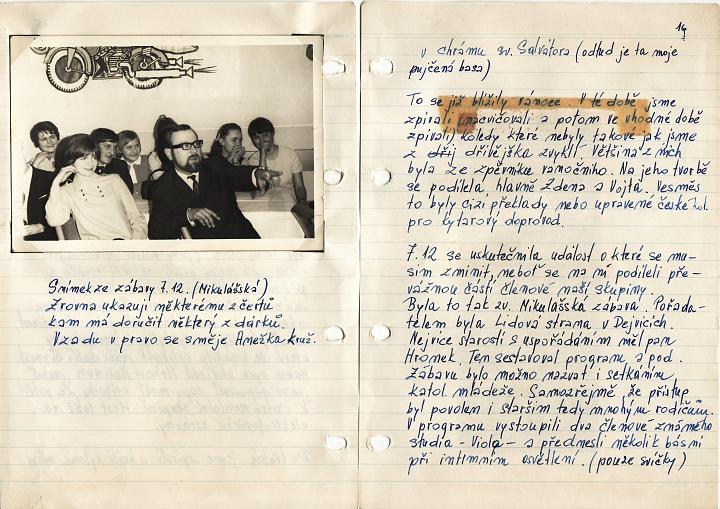 Snímek ze zábavy 7.12. (Mikulášská)
Zrovna ukazuji některému z čertů
kam má doručit některý z dárků.
Vzadu v pravo se směje Anežka Kruž.
14
v chrámu sv. Salvátora (odtud je ta moje
pujčená basa)
To se již blížily vánoce V té době jsme
zpívali nacvičovali a potom ve vhodné době
zpívali koledy které nebyly takové jak jsme
z dřívějška zvyklí. Většina z nich
byla ze zpěvníku vánočního. Na jeho tvorbě
se podílela, hlavně Zdena a Vojta. Vesměs
to byly cizí překlady nebo upravené české kol.
pro kytarový doprovod.
7.12 se uskutečnila událost o které se mu-
sím zmínit, neboť se na ní podíleli pře-
vážnou částí členové naší skupiny.
Byla to tak zv. Mikulášská zábava. Pořada-
telem byla Lidová strana v Dejvicích.
Nejvíce starostí s uspořádáním měl pan
Hromek. Ten sestavoval program a pod.
Zábavu bylo možno nazvat i setkáním
katol mládeže. Samozřejmě, že přístup
byl povolen i starším tedy mnohým rodičům.
V programu vystoupili dva členové známého
studia - Viola - a přednesli několik básní
při intimním osvětlení. (pouze svíčky)